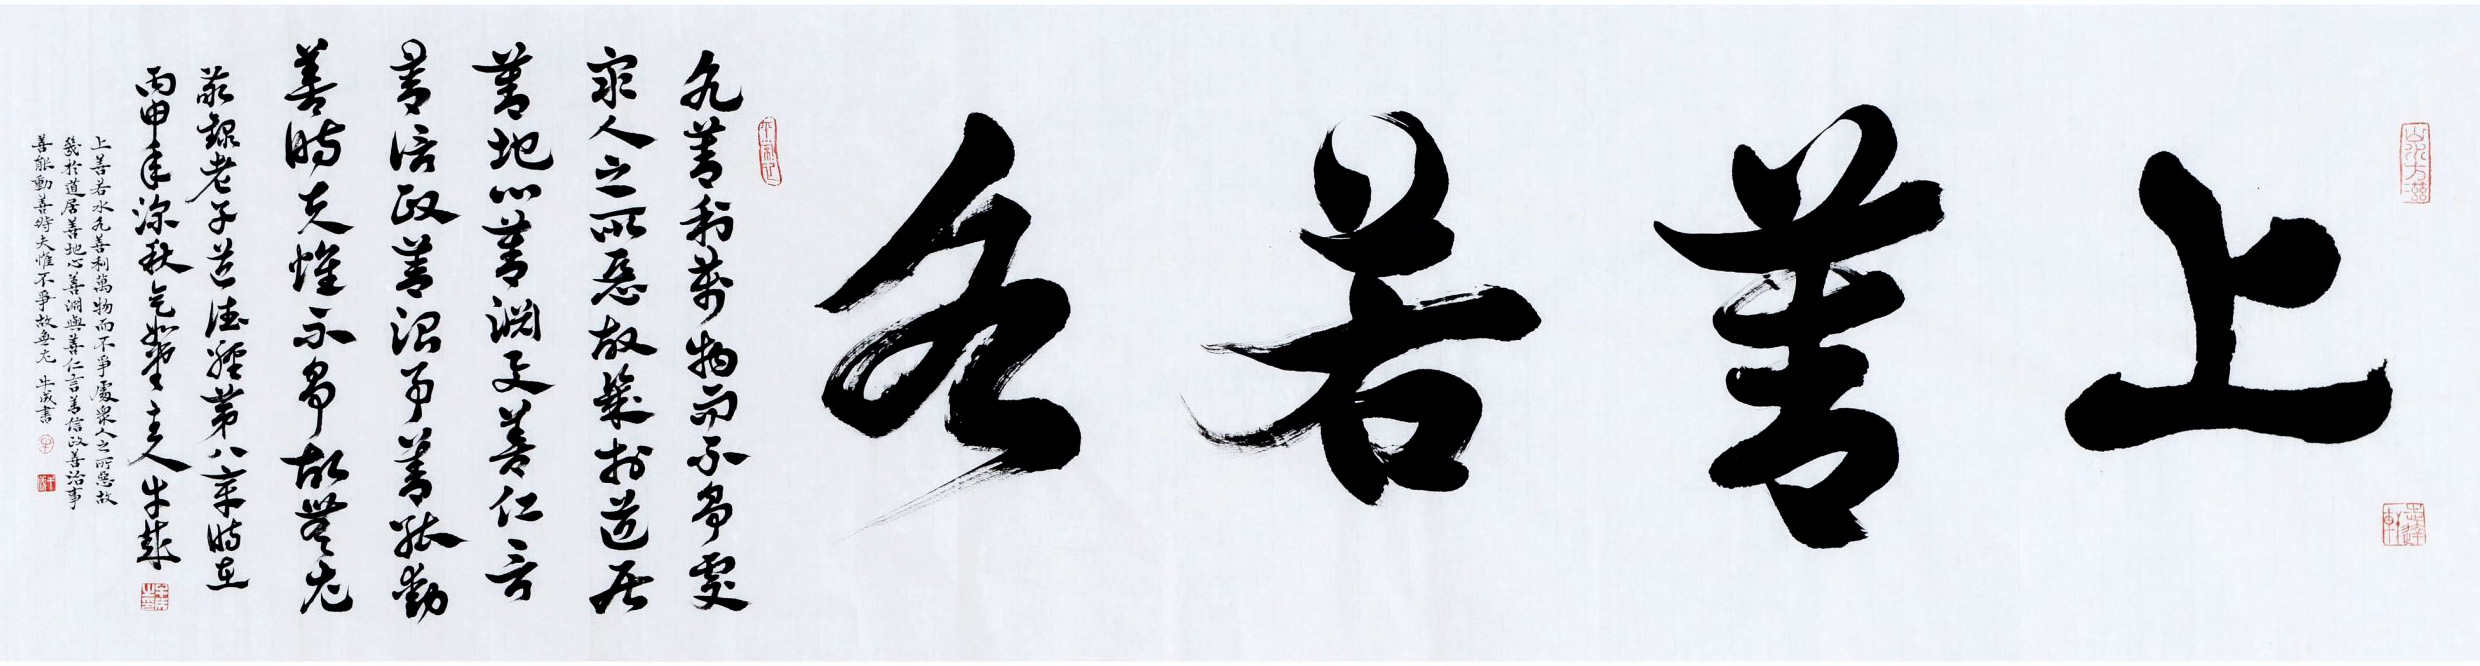 上善若水
水善利萬物而不爭處
眾人之所惡故幾於道居
善地心善淵與善仁言
善信政善治事善能動
善時夫惟不爭故無尤
敬錄老子道德經第八章時在
丙申年深秋主人牛成
上善若水水善利萬物而不爭處眾人之所惡故
幾於道居善地心善淵與善仁言善信政善治事
善能動善時夫惟不爭故無尤 牛成書